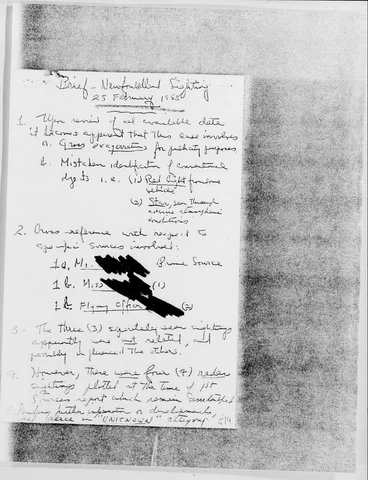 Brief - Newfoundland Sighting
25 February 1955
1. Upon review of all available data
it becomes apparent that this case involves
a. Gross exaggeration for publicity purposes
b. Mistaken identification of conventional
objects i.e. (1) Red light from some
vehicle
(2) Star, seen through
extreme atmospheric
conditions
2. Cross reference with regard to
specific sources involved:
1a. Mr. Prime Source
1b. Miss (1)
1b. Flying Officer (2)
3. The three (3) separately seen sightings
apparently were not related, and
possibly influenced the other.
4. However, there were four (4) radar
sightings plotted at the time of 1st
Sources report which remain unidentified
Pending further information or developments,
in "UNKNOWN" category.